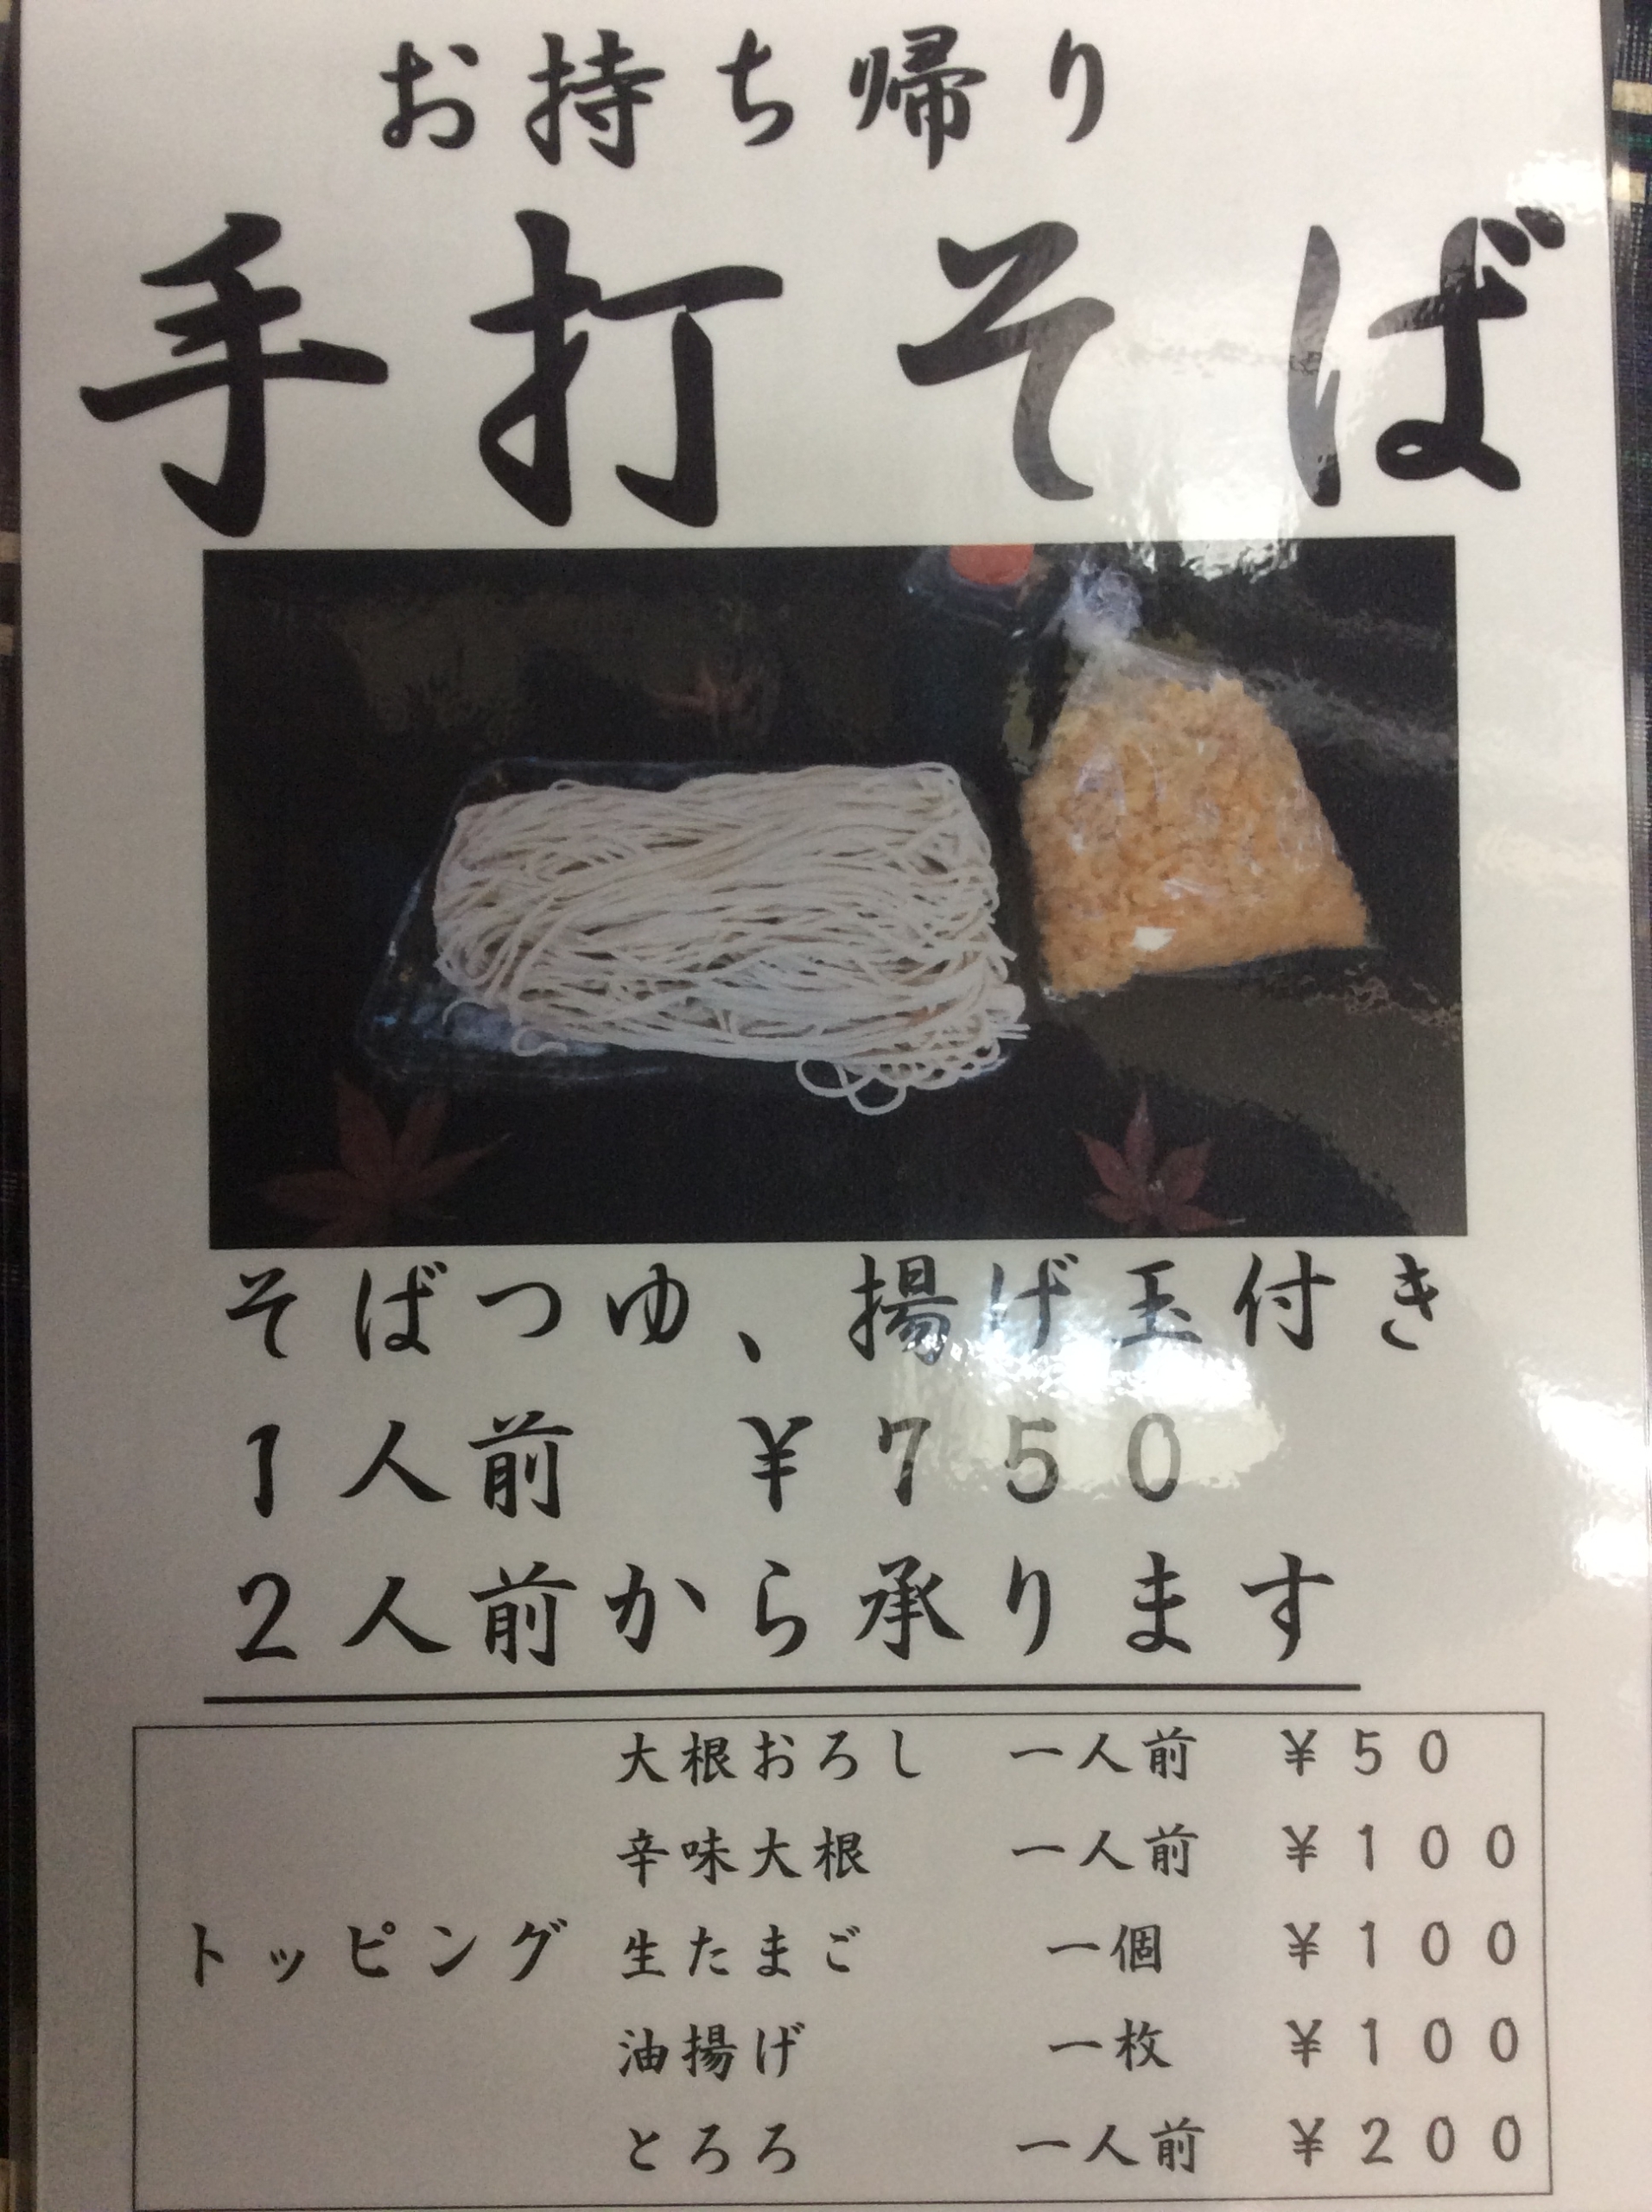 お持ち帰り
手打そば
そばつゆ、揚げ玉付き
1人前 ¥750
2人前から承ります
大根おろし 一人前 ¥50
辛味大根 一人前 ¥100
トッピング 生たまご 一個 ¥100
油揚げ 一枚 ¥100
とろろ 一人前 ¥200